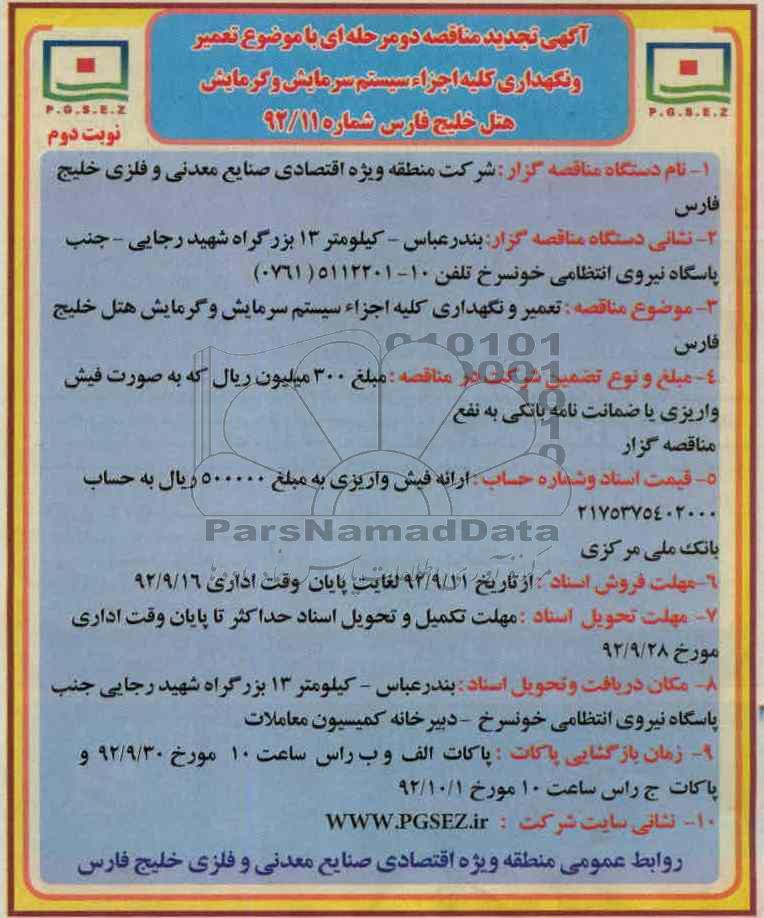 آگهی تجدید مناقصه دو مرحله ای با موضوع تعمیر
و نگهداری کلیه اجزاء سیستم سرمایش و گرمایش
هتل خلیج فارس شماره ۹۲/۱۱
P.G.S.E.Z
P.G.S.E.Z
نوبت دوم
۱- نام دستگاه مناقصه گزار: شرکت منطقه ویژه اقتصادی صنایع معدنی و فلزی خلیج
فارس
۲- نشانی دستگاه مناقصه گزار: بندرعباس - کیلومتر ۱۳ بزرگراه شهید رجایی - جنب
پاسگاه نیروی انتظامی خونسرخ تلفن ۱۰- ۵۱۱۲۲۰۱ (۰۷۶۱)
۳- موضوع مناقصه: تعمیر و نگهداری کلیه اجزاء سیستم سرمایش و گرمایش هتل خلیج
فارس
۴- مبلغ و نوع تضمین شرکت در مناقصه: مبلغ ۳۰۰ میلیون ریال که به صورت فیش
واریزی یا ضمانت نامه بانکی به نفع
مناقصه گزار
۵- قیمت اسناد وشماره حساب: ارائه فیش واریزی به مبلغ ۵۰۰۰۰۰ ریال به حساب
۲۱۷۵۳۷۵۴۰۲۰۰۰
ParsNamadData
بانک ملی مرکزی
۶-مهلت فروش اسناد: از تاریخ ۹۲/۹/۱۱ لغایت پایان وقت اداری ۹۲/۹/۱۶
۷- مهلت تحویل اسناد: مهلت تکمیل و تحویل اسناد حداکثر تا پایان وقت اداری
مورخ ۹۲/۹/۲۸
۸- مکان دریافت و تحویل اسناد: بندرعباس - کیلومتر ۱۳ بزرگراه شهید رجایی جنب
پاسگاه نیروی انتظامی خونسرخ - دبیرخانه کمیسیون معاملات
۹- زمان بازگشایی پاکات: پاکات الف و ب راس ساعت ۱۰ مورخ ۹۲/۹/۳۰ و
پاکات ج راس ساعت ۱۰ مورخ ۹۲/۱۰/۱
۱۰- نشانی سایت شرکت: WWW.PGSEZ.ir
روابط عمومی منطقه ویژه اقتصادی صنایع معدنی و فلزی خلیج فارس